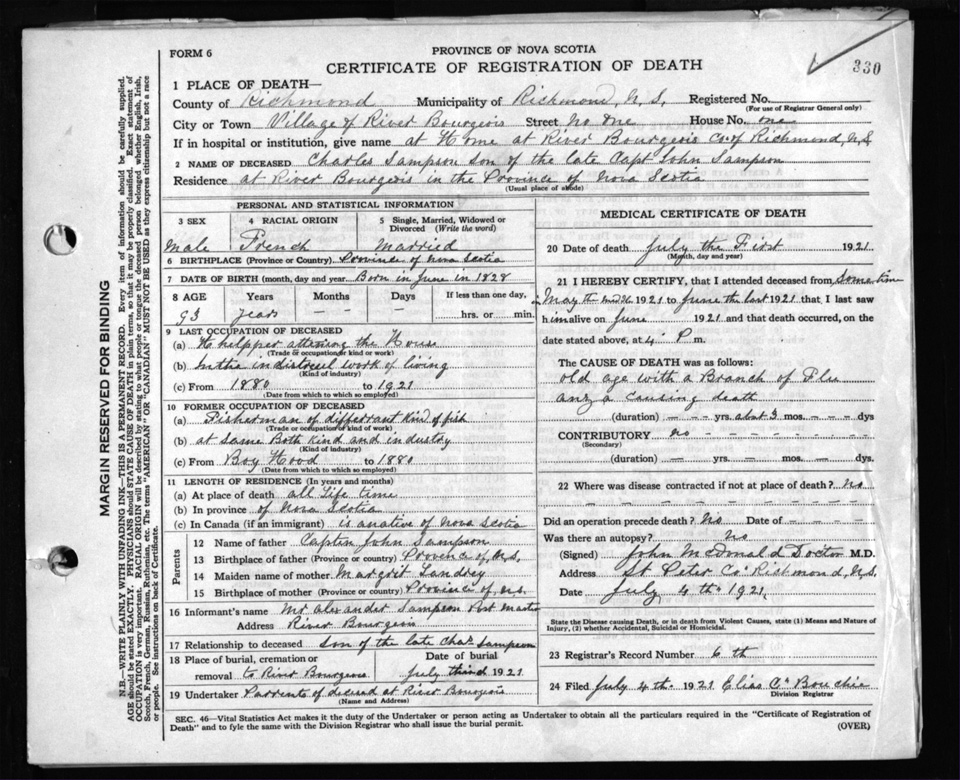 FORM 6
PROVINCE OF NOVA SCOTIA
CERTIFICATE OF REGISTRATION OF DEATH
330
1 PLACE OF DEATH—
County of Richmond Municipality of Richmond N.S. Registered No.
(For use of Registrar General only)
City or Town Village of River Bourgeois Street No One House No. one
If in hospital or institution, give name at Home at River Bourgeois Co of Richmond, N.S
2 NAME OF DECEASED Charles Sampson son of the late Capt John Sampson
Residence at River Bourgeois in the Province of Nova Scotia
(Usual place of abode)
PERSONAL AND STATISTICAL INFORMATION
3 SEX 4 RACIAL ORIGIN 5 Single, Married, Widowed or Divorced (Write the word)
Male French Married
6 BIRTHPLACE (Province or Country) Province of Nova Scotia
7 DATE OF BIRTH (month, day and year) Born in June in 1828
8 AGE Years Months Days If less than one day,
93 years – – – – hrs. or min.
9 LAST OCCUPATION OF DECEASED
(a) helpper the House
(Trade or occupation or kind or work)
(b) work of living
(Kind of industry)
(c) From 1880 to 1921
(Date from which to which so employed)
10 FORMER OCCUPATION OF DECEASED
(a) Fisherman of differrant kind of fish
(Trade or occupation or kind of work)
(b) at same Both kind and industry
(Kind of industry)
(c) From Boy Hood to 1880
(Date from which to which so employed)
11 LENGTH OF RESIDENCE (In years and months)
(a) At place of death all Life time
(b) In province of Nova Scotia
(c) In Canada (if an immigrant) is a native of Nova Scotia
Parents
12 Name of father Captin John Sampson
13 Birthplace of father (Province or country) Provence of N.S.
14 Maiden name of mother Margrit Landrey
15 Birthplace of mother (Province or country) Province of N.S.
16 Informant's name Mr Alexander Sampson Post Master
Address River Bourgeois
17 Relationship to deceased Son of the late Chas Sampson
18 Place of burial, cremation or removal to River Bourgeois
Date of burial July third 1921
19 Undertaker Parrents of decised at River Bourgeois
(Name and Address)
MEDICAL CERTIFICATE OF DEATH
20 Date of death July the First 1921
(Month, day and year)
21 I HEREBY CERTIFY, that I attended deceased from Sometime
in May the middle 1921 to June the last 1921 that I last saw
him alive on June 1921 and that death occurred, on the
date stated above, at 4 P m.
The CAUSE OF DEATH was as follows:
old age with a Branch of Flu
a causing death
(duration) – – yrs. about 3 mos. – – – dys
CONTRIBUTORY no – – – – – –
(Secondary)
(duration) – – yrs. – – mos. – – dys.
22 Where was disease contracted if not at place of death? No
Did an operation precede death? No Date of – – –
Was there an autopsy? No
(Signed) John McDonald Doctor M.D.
Address St Peter Co Richmond, N.S.
Date July 4th 1921
State the Disease causing Death, or in death from Violent Causes, state (1) Means and Nature of
Injury, (2) whether Accidental, Suicidal or Homicidal.
23 Registrar's Record Number 6th
24 Filed July 4th 1921 Elias
Division Registrar
SEC. 46—Vital Statistics Act makes it the duty of the Undertaker or person acting as Undertaker to obtain all the particulars required in the "Certificate of Registration of
Death" and to fyle the same with the Division Registrar who shall issue the burial permit.
(OVER)
MARGIN RESERVED FOR BINDING
N.B.—WRITE PLAINLY WITH UNFADING INK—THIS IS A PERMANENT RECORD. Every item of information should be carefully supplied.
AGE should be stated EXACTLY. PHYSICIANS should STATE CAUSE OF DEATH in plain terms, so that it may be properly classified. Exact statement of
OCCUPATION is very important. RACIAL ORIGIN will be described by stating to what people or tongue the deceased person belonged whether English, Irish,
Scotch, French, German, Russian, Ruthenian, etc. The terms "AMERICAN" OR "CANADIAN" MUST NOT BE USED as they express citizenship but not a race
or people. See instructions on back of Certificate.